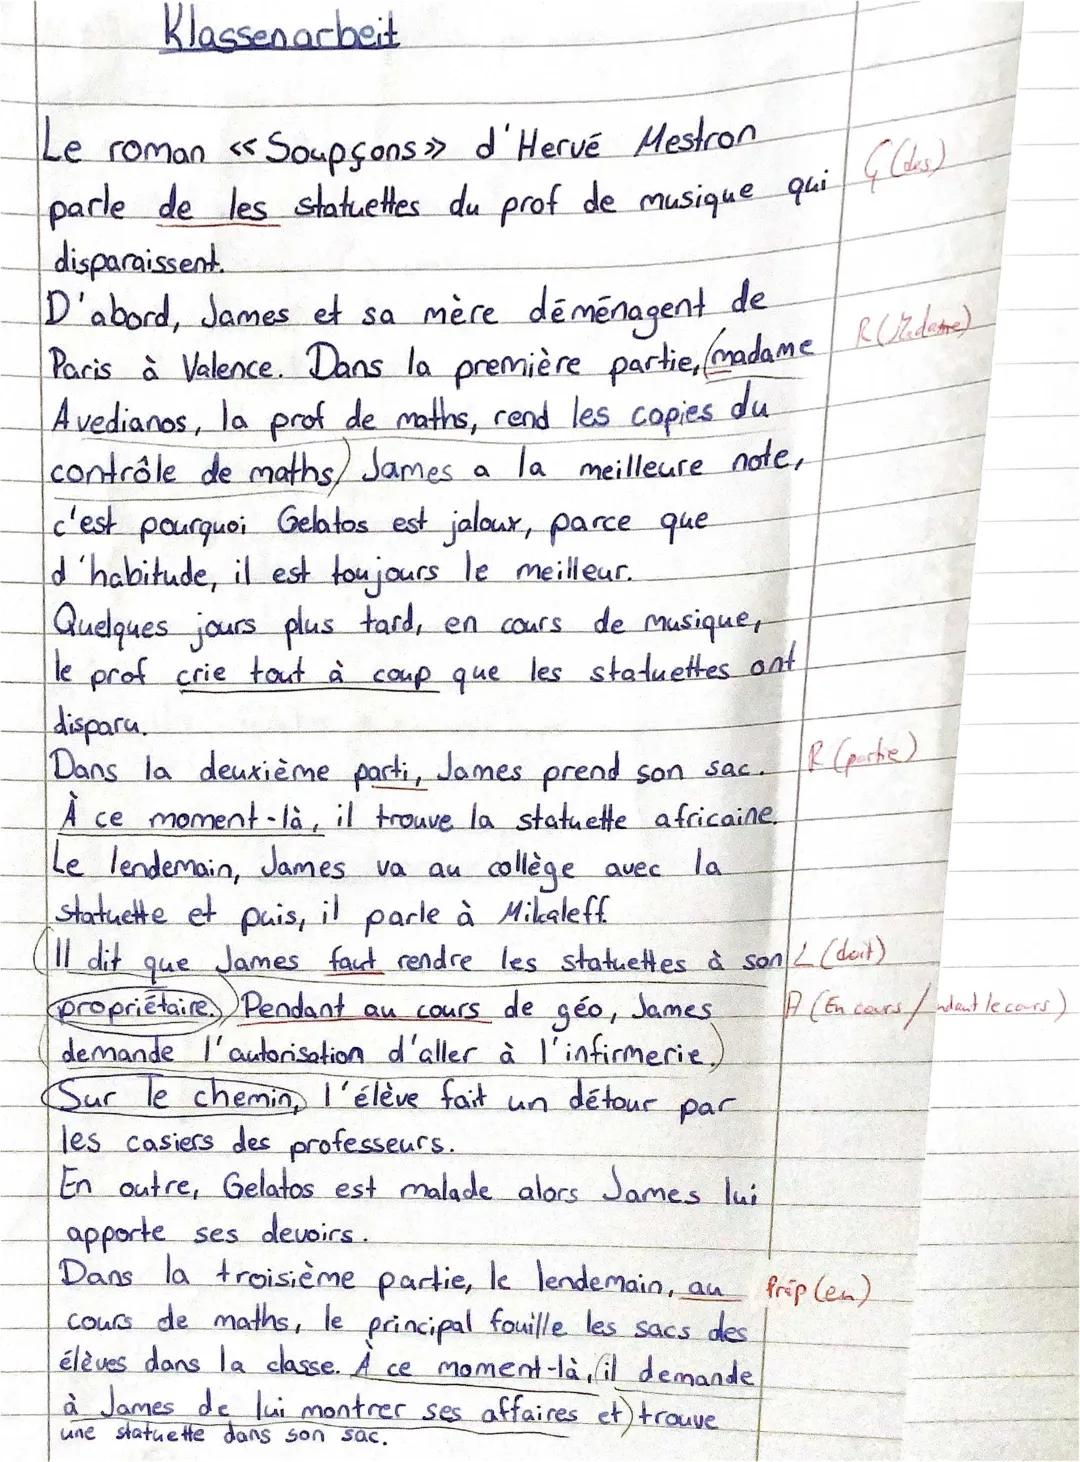 Klassenarbeit
Le roman «Soupçons» d'Hervé Mestron
parle de les statuettes du prof de musique qui
G (des)
disparaissent.
D'abord, James et sa mère déménagent de
Paris à Valence. Dans la première partie, (madame
R (Madame)
Avedianos, la prof de maths, rend les copies du
contrôle de maths) James a la meilleure note,
c'est pourquoi Gelatos est jaloux, parce que
d'habitude, il est toujours le meilleur.
Quelques jours plus tard, en cours de musique,
le prof crie tout à coup que les statuettes ont
disparu.
Dans la deuxième parti, James prend son sac.
R (partie)
À ce moment-là, il trouve la statuette africaine.
Le lendemain, James va au collège avec la
statuette et puis, il parle à Mikaleff.
(Il dit que James faut rendre les statuettes à son
L (doit)
propriétaire.) (Pendant au cours de géo, James
A (En cours / ndant le cours)
demande l'autorisation d'aller à l'infirmerie.)
Sur le chemin, l'élève fait un détour par
les casiers des professeurs.
En outre, Gelatos est malade alors James lui
apporte ses devoirs.
Dans la troisième partie, le lendemain, au
Prép (en)
cours de maths, le principal fouille les sacs des
élèves dans la classe. À ce moment-là, (il demande
à James de lui montrer ses affaires et) trouve
une statuette dans son sac.